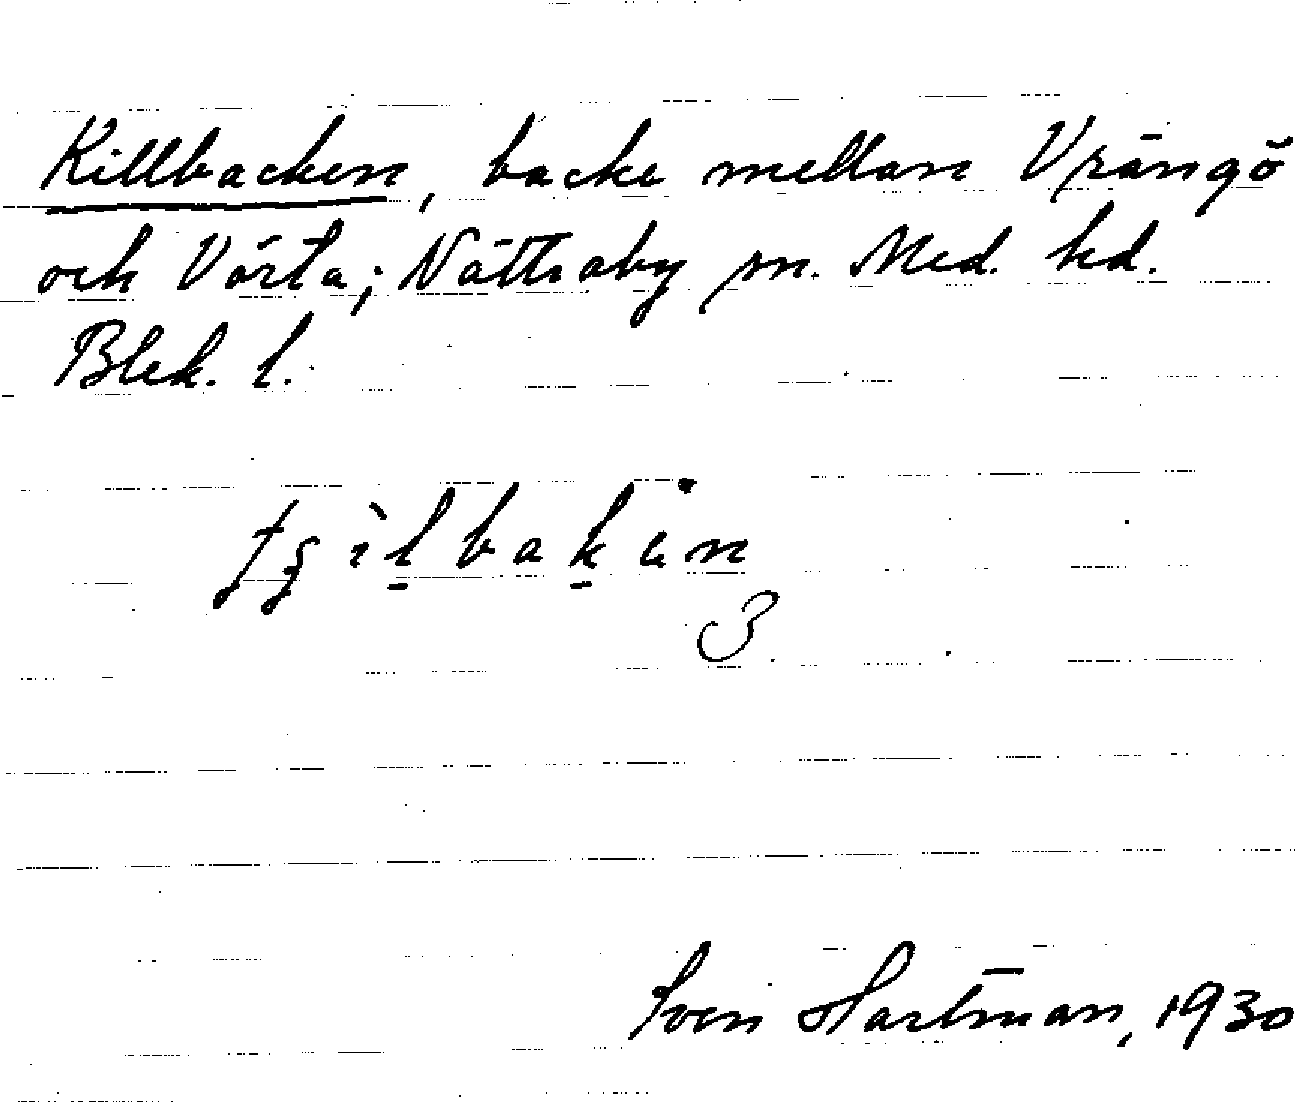 Killbacken, backe mellan Vrängö
och Vörta; Nättraby sn. Med. hd.
Blek. l.
3
Sven Hartman, 1930